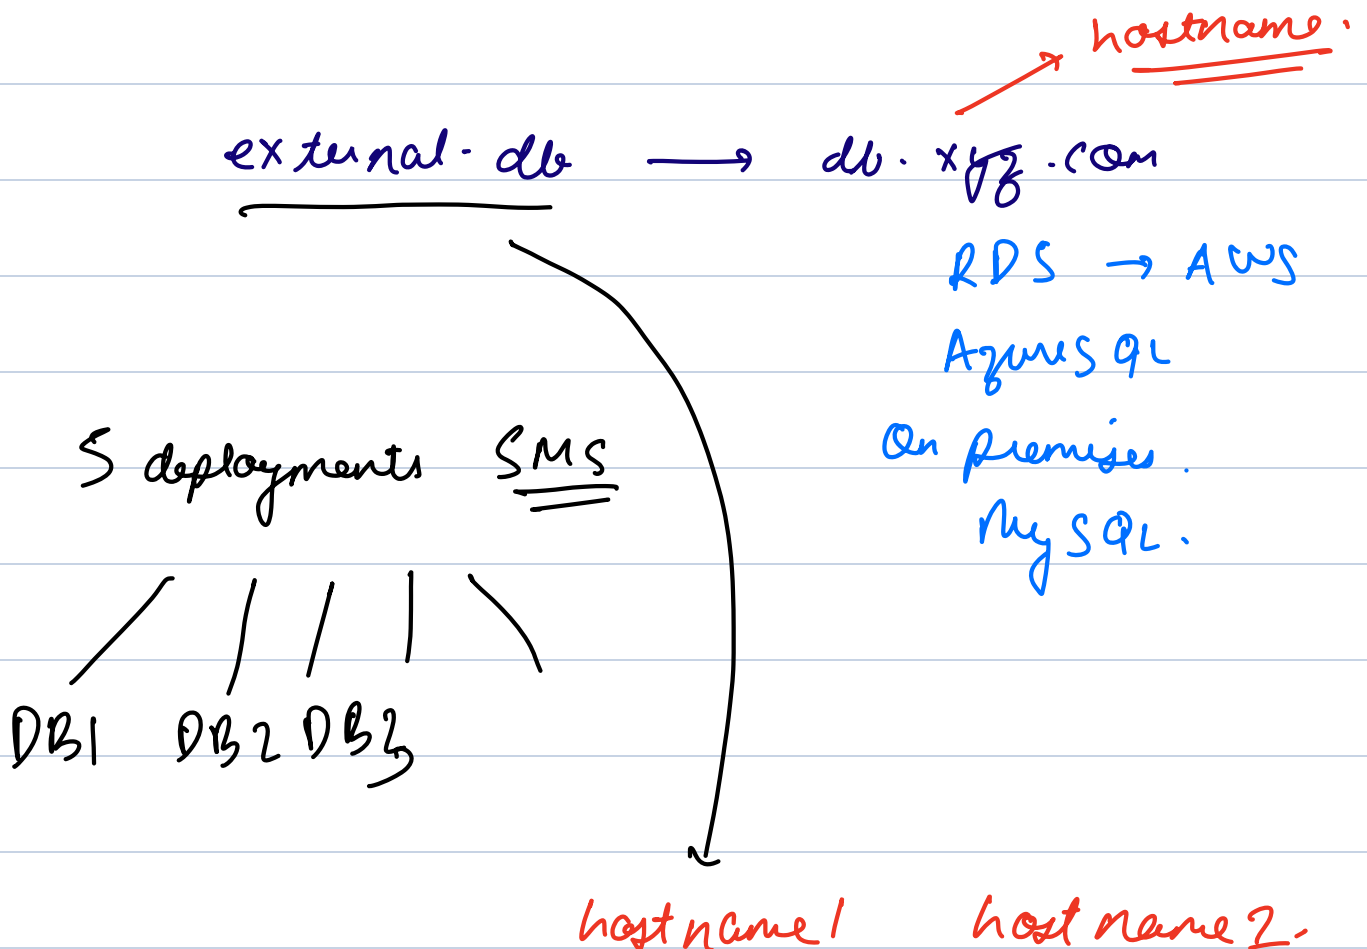 hostname.
external-db → db.xyz.com
RDS → AWS
AzureSQL
On premises.
MySQL.
5 deployments SMS
DB1 DB2 DB3
hostname1 hostname2.